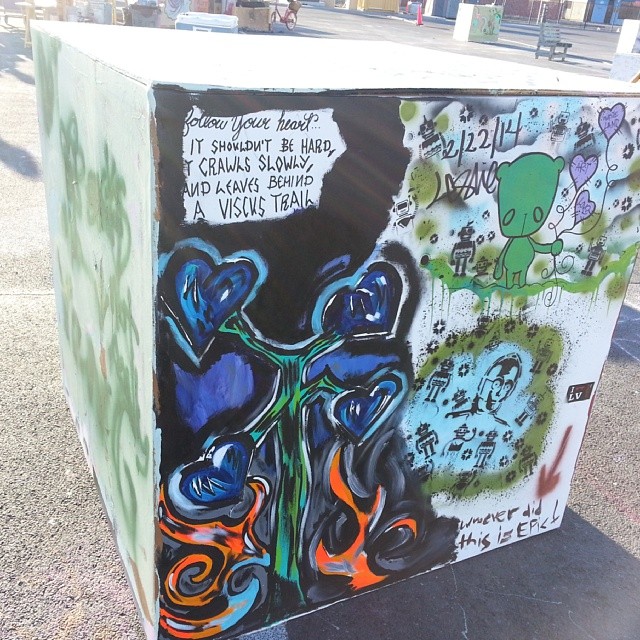 follow Your heart...
IT SHOULDN'T BE HARD,
IT CRAWLS SLOWLY,
AND LEAVES BEHIND
A VISCUS TRAIL
2/22/14
LV
whoever did
this is EPic!